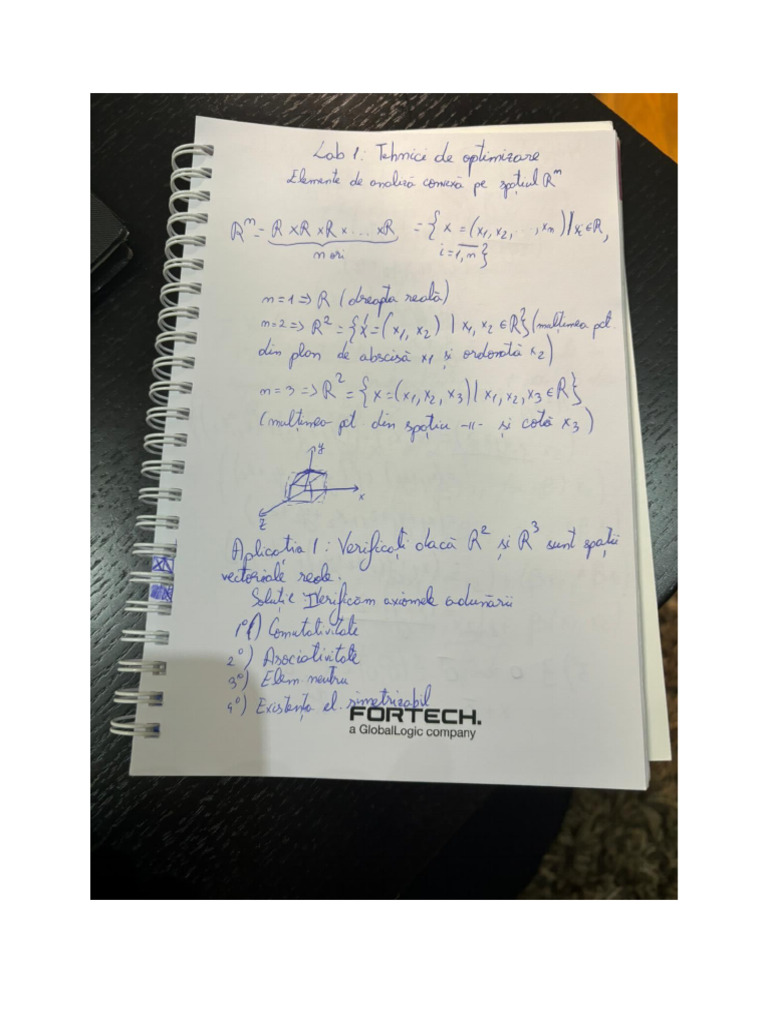 Lab 1: Tehnici de optimizare
Elemente de analiză convexă pe spațiul Rⁿ
Rⁿ = R × R × R × ... × R = { x = (x₁, x₂, , xₙ) | xᵢ ∈ R,
n ori i = 1,n }
n=1 => R (dreapta reală)
n=2 => R² = { x = (x₁, x₂) | x₁, x₂ ∈ R² } (mulțimea pct.
din plan de abscisă x₁ și ordonată x₂)
n=3 => R² = { x = (x₁, x₂, x₃) | x₁, x₂, x₃ ∈ R }
(mulțimea pt. din spațiu -11- și cotă x₃)
y
x
z
Aplicația 1: Verificați dacă R² și R³ sunt spații
vectoriale reale.
Soluție I Verificăm axiomele adunării
1º) Comutativitate
2º) Asociativitate
3º) Elem. neutru
4º) Existența el. simetrizabil
FORTECH.
a GlobalLogic company